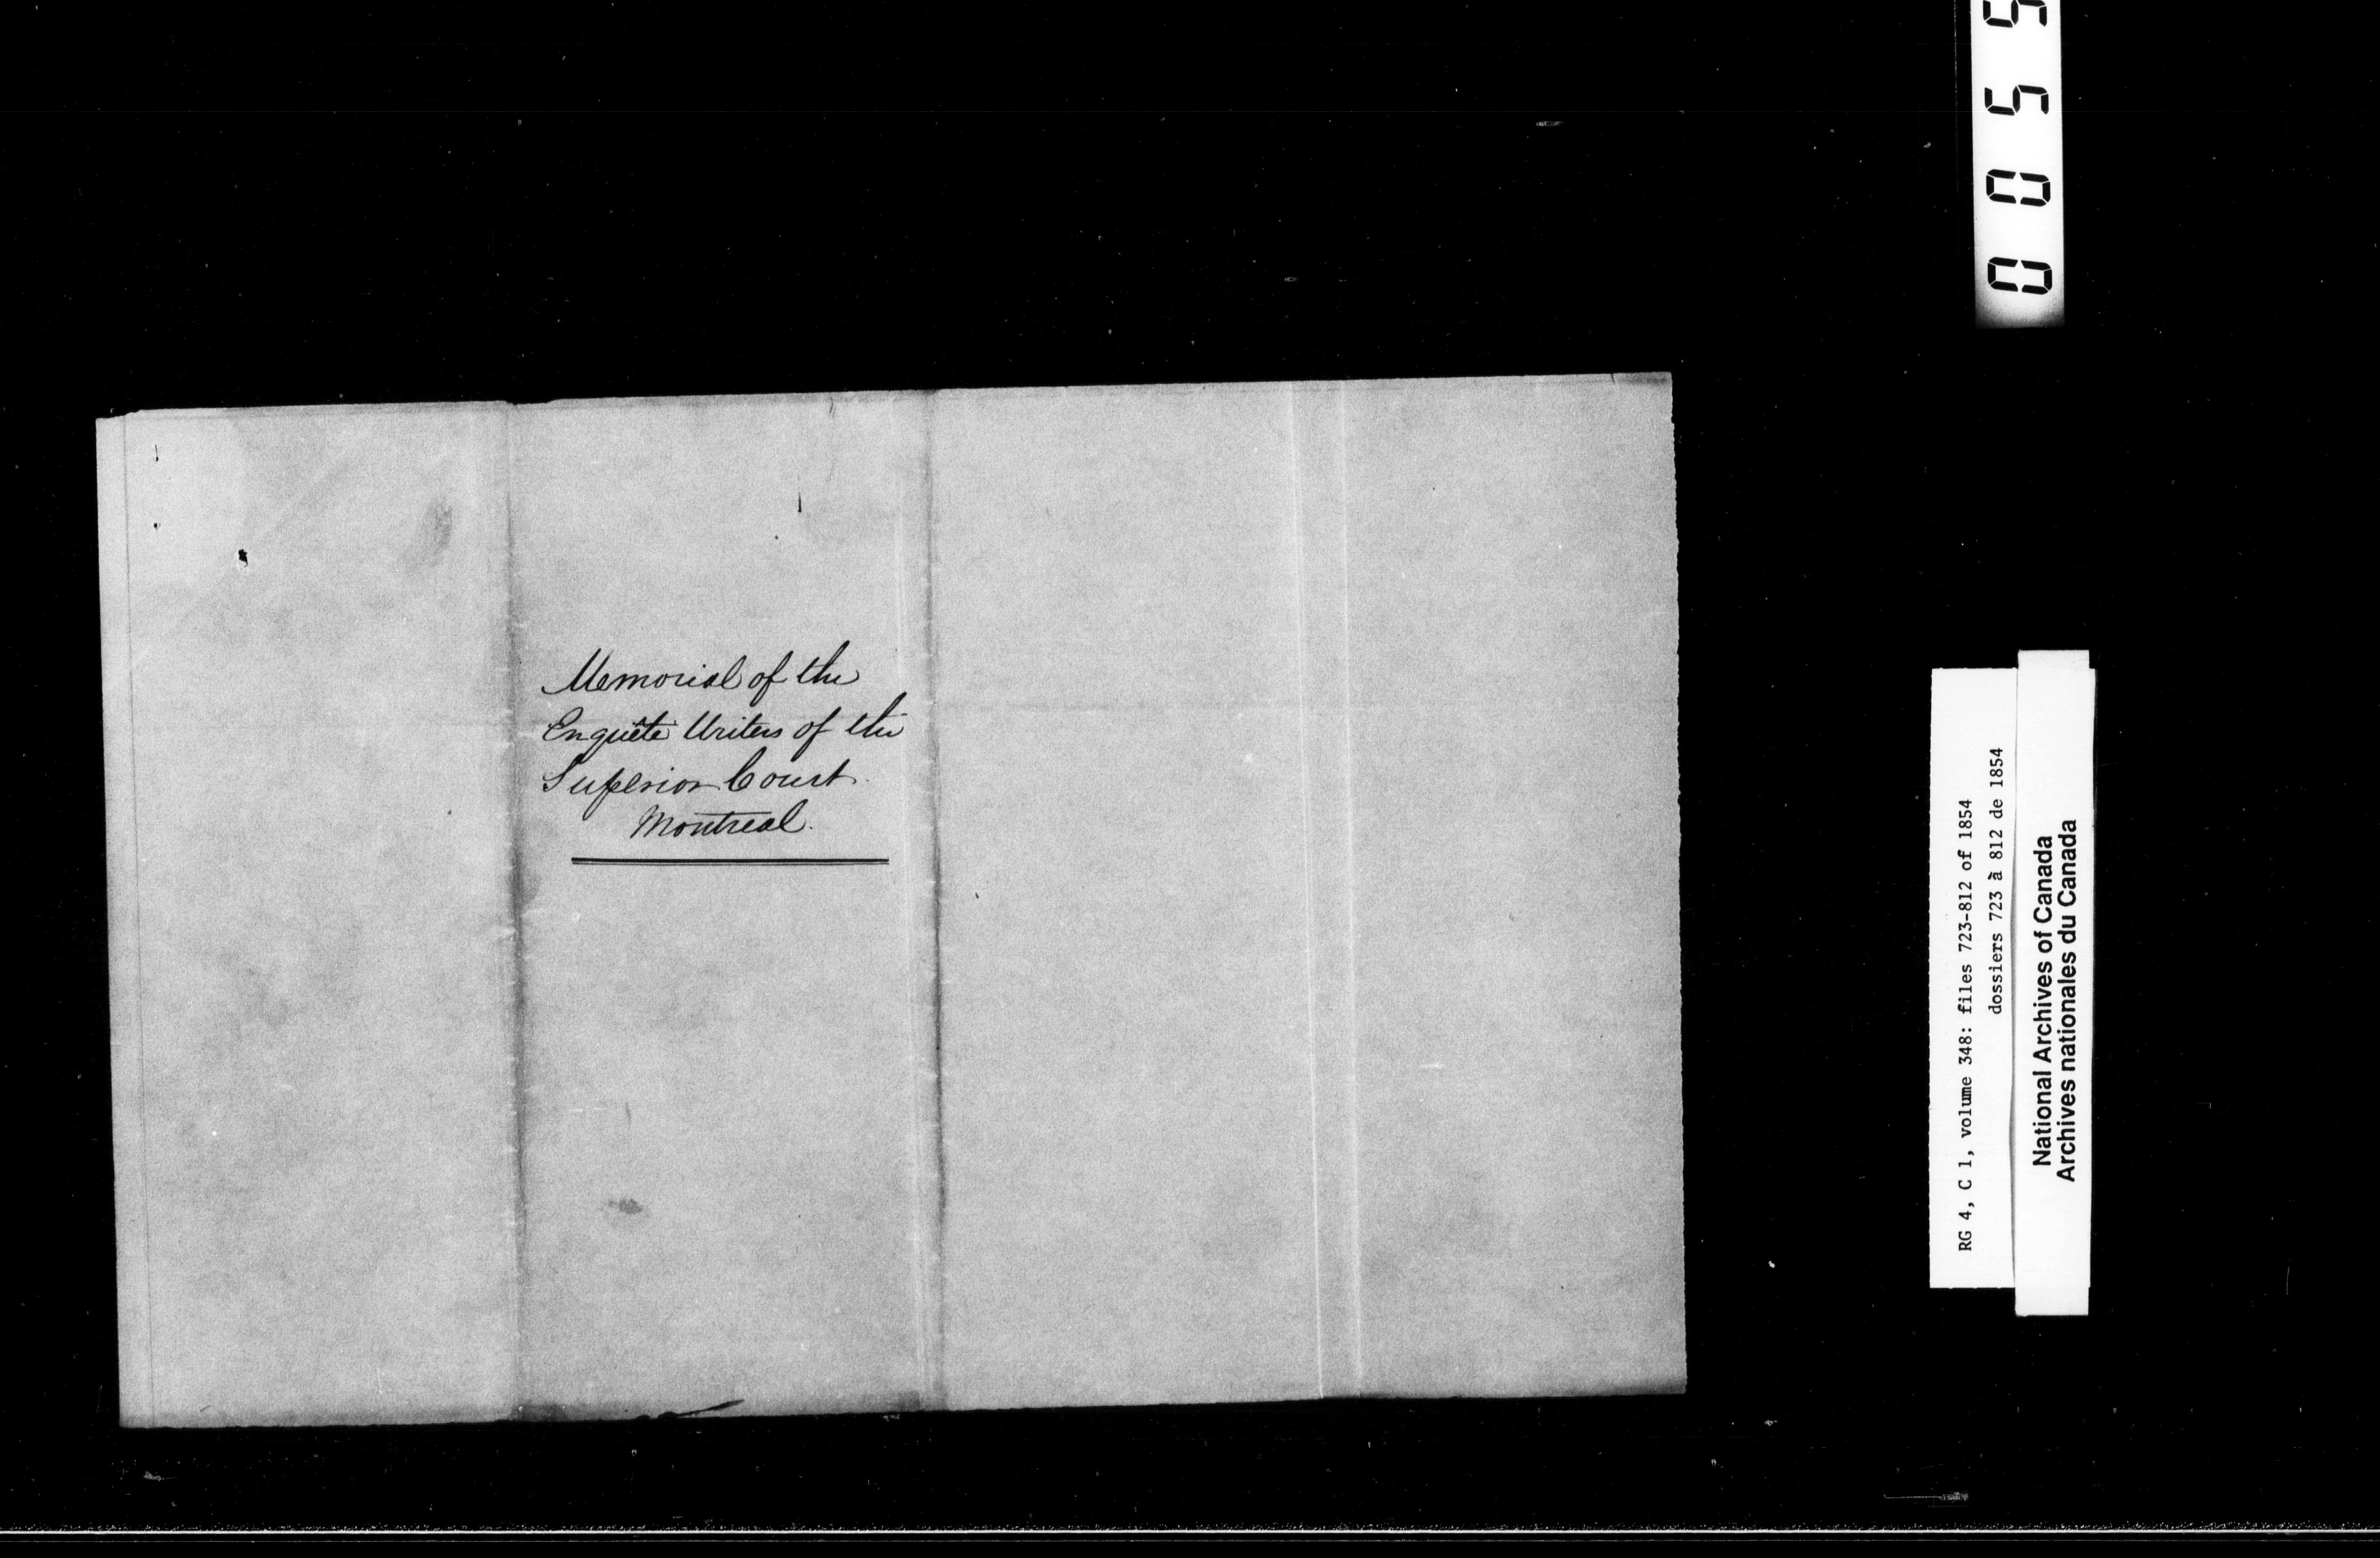 Memorial of the
Enquête Writers of the
Superior Court
Montreal.
RG 4, C 1, volume 348: files 723-812 of 1854
dossiers 723 à 812 de 1854
National Archives of Canada
Archives nationales du Canada
0055